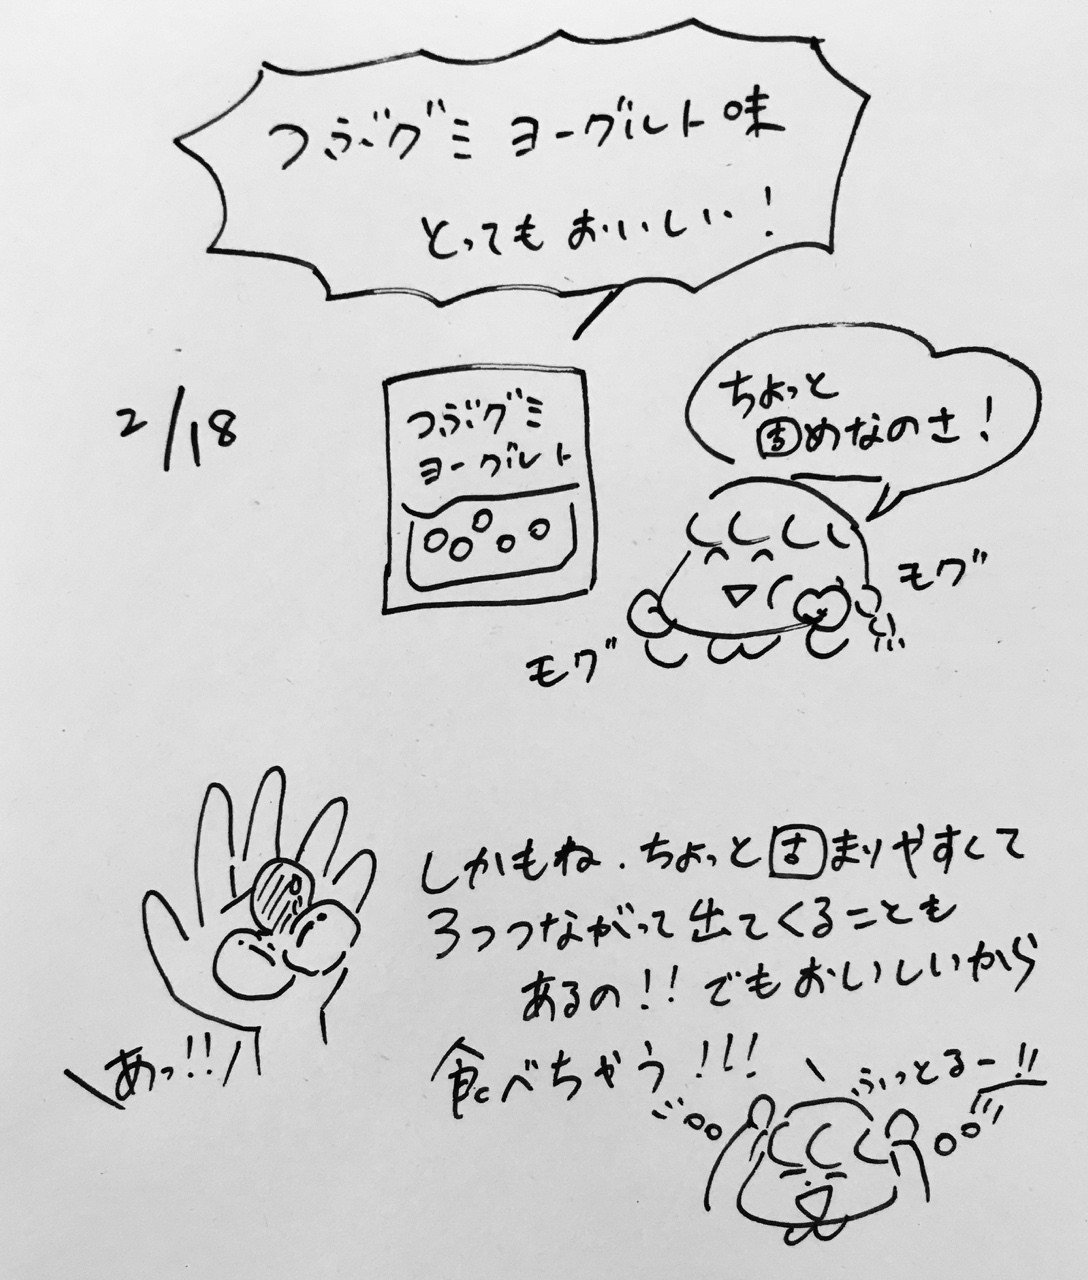 つぶグミ ヨーグルト味
とってもおいしい!
2/18
つぶグミ
ヨーグルト
ちょっと
固めなのさ!
モグ
モグ
しかもね、ちょっと固まりやすくて
3つつながって出てくることも
あるの!!でもおいしいから
食べちゃう!!!
あっ!!
ふっとるー!!